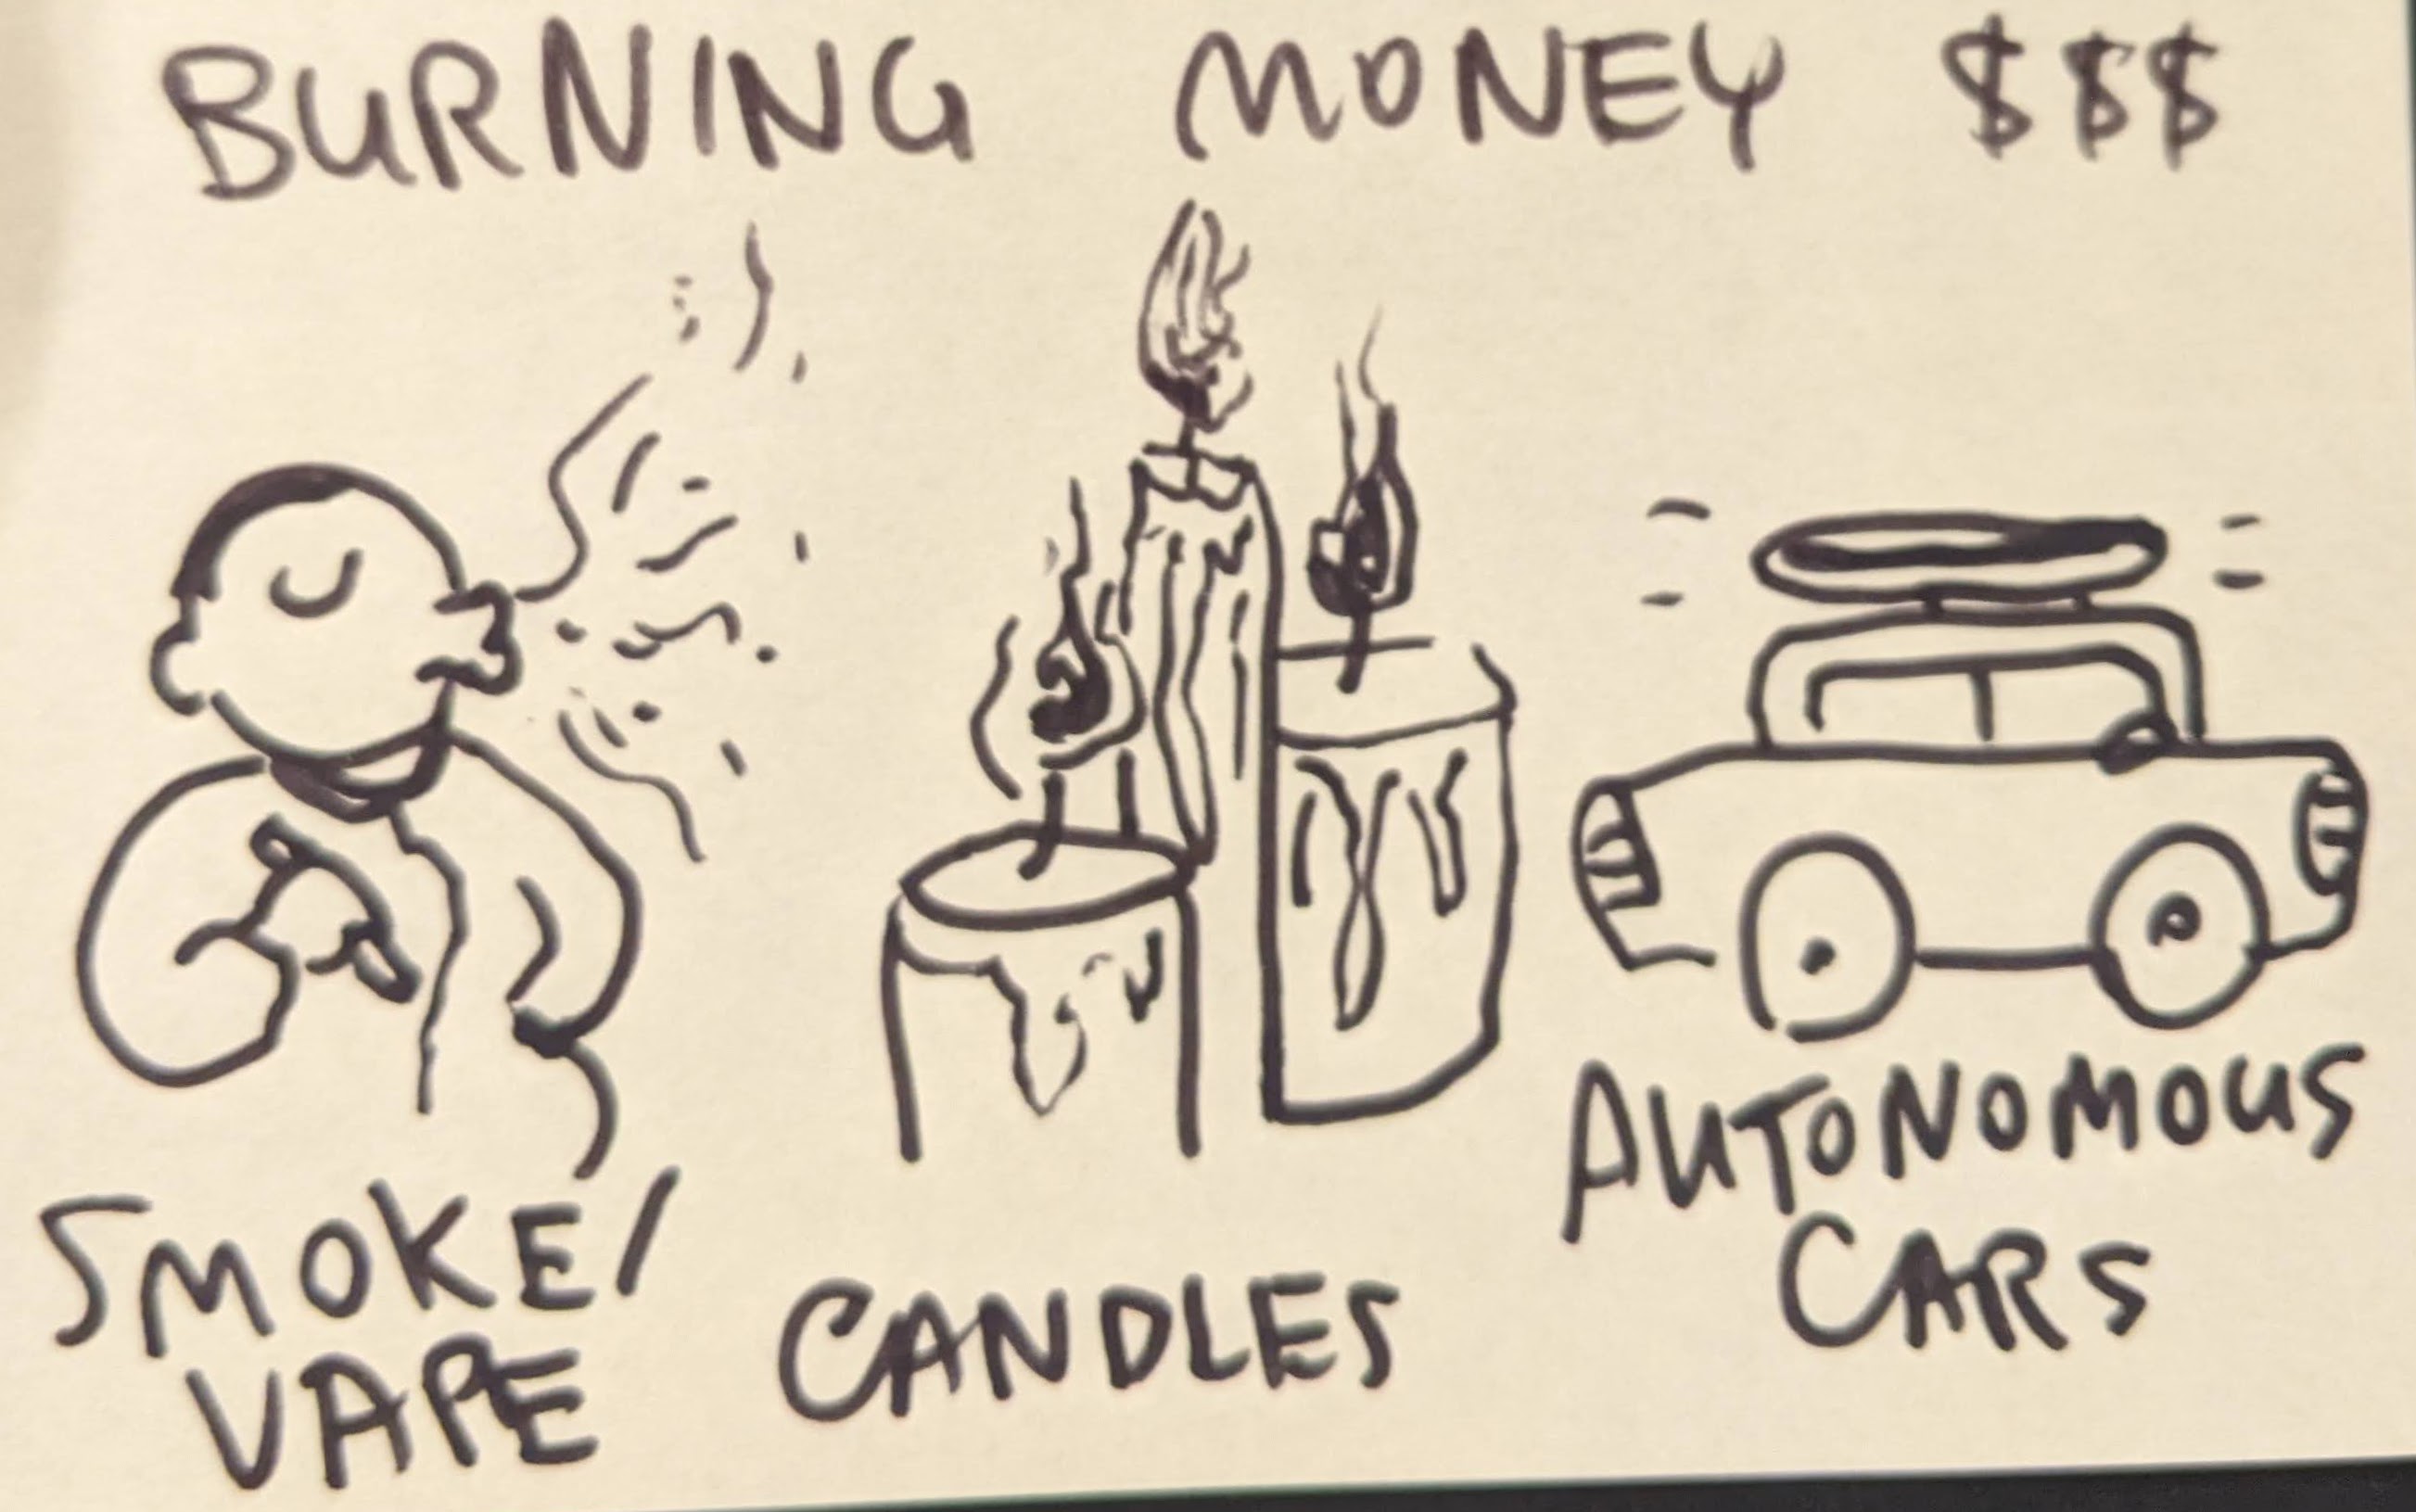 BURNING MONEY $$$
SMOKE/
VAPE
CANDLES
AUTONOMOUS
CARS